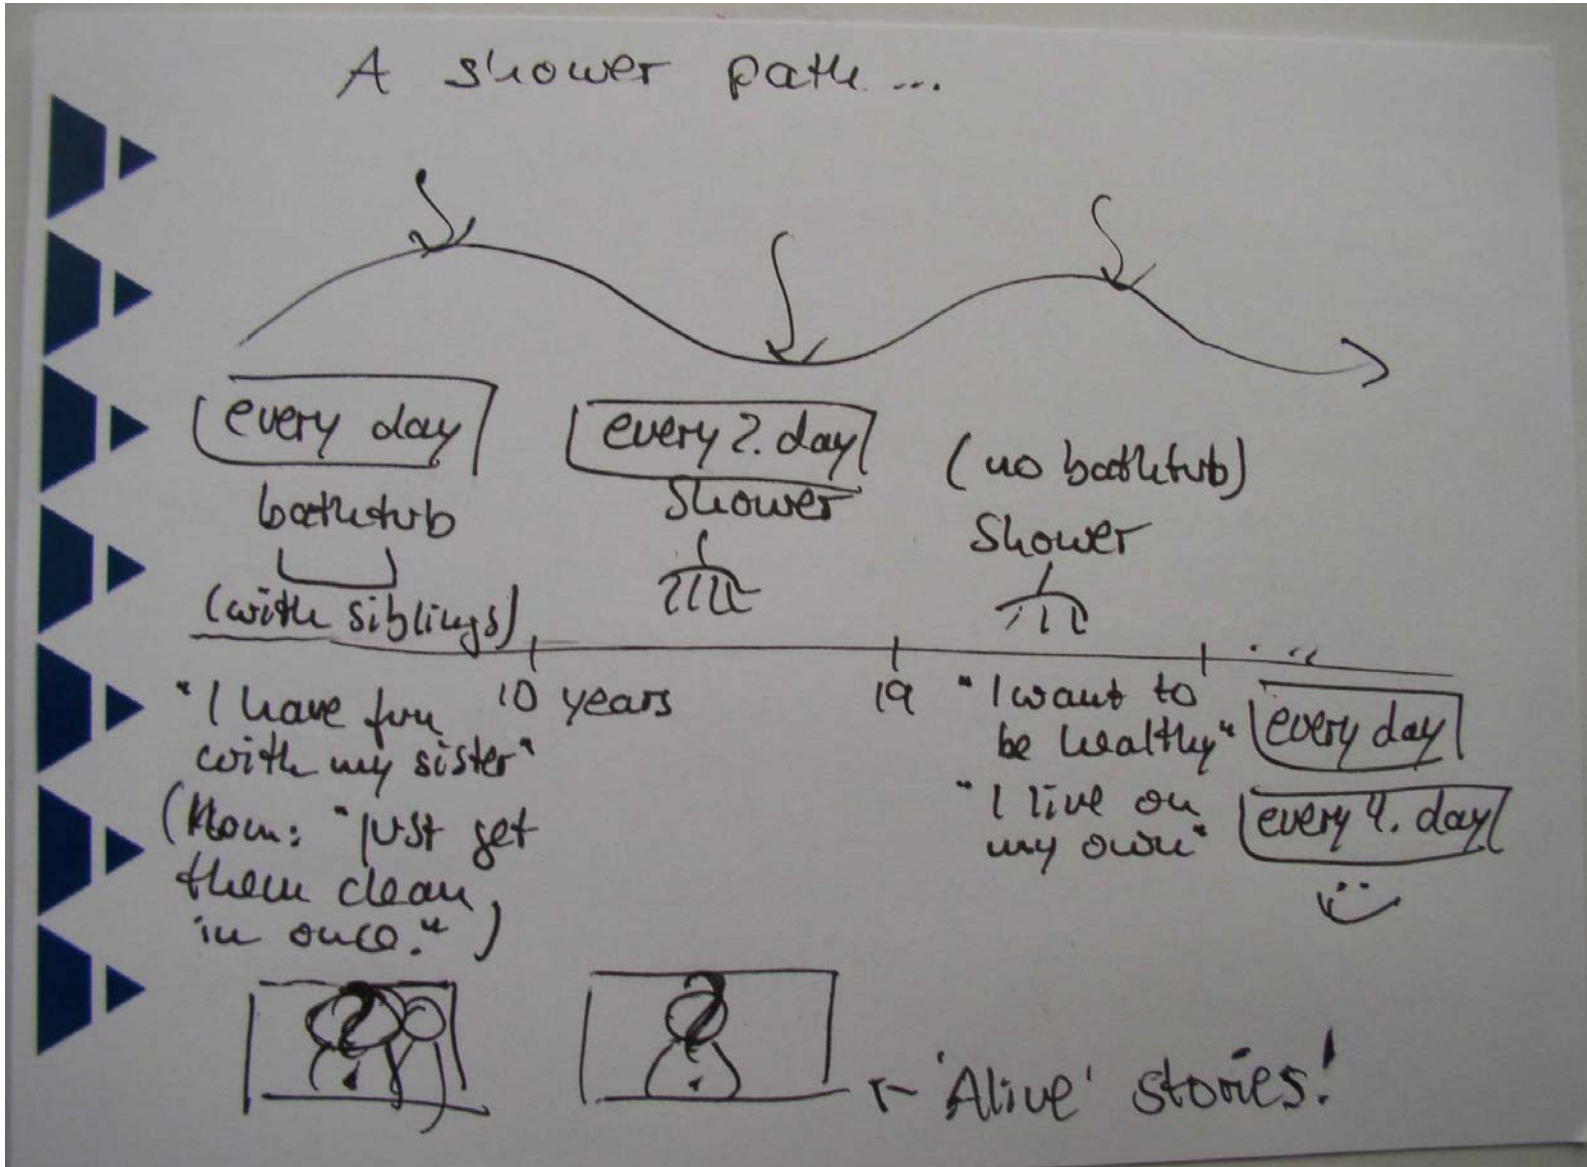 A shower path...
every day
bathtub
(with siblings)
every 2. day
Shower
(no bathtub)
Shower
10 years
19
...
"I have fun
with my sister"
(Mom: "just get
them clean
in once.")
"I want to
be healthy"
every day
"I live on
my own"
every 4. day
'Alive' stories!